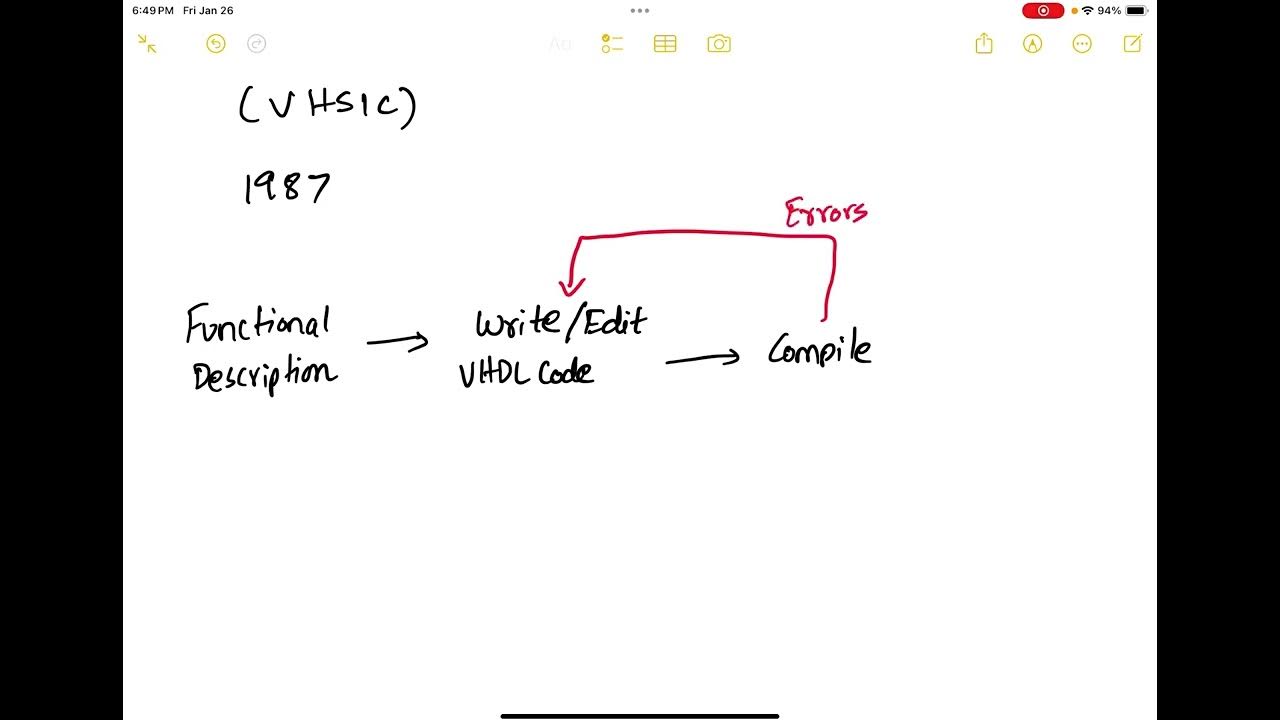 6:49 PM Fri Jan 26
94%
Aa
(VHSIC)
1987
Errors
Functional
Description
Write/Edit
VHDL Code
Compile